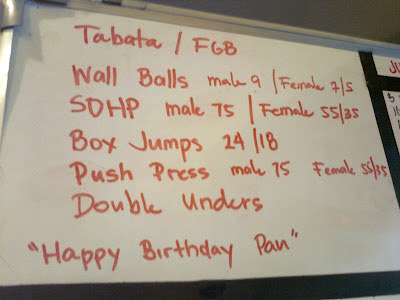 Tabata / FGB
Wall Balls male 9 / Female 7/5
SDHP male 75 / Female 55/35
Box Jumps 24/18
Push Press male 75 Female 55/35
Double Unders
"Happy Birthday Pan"